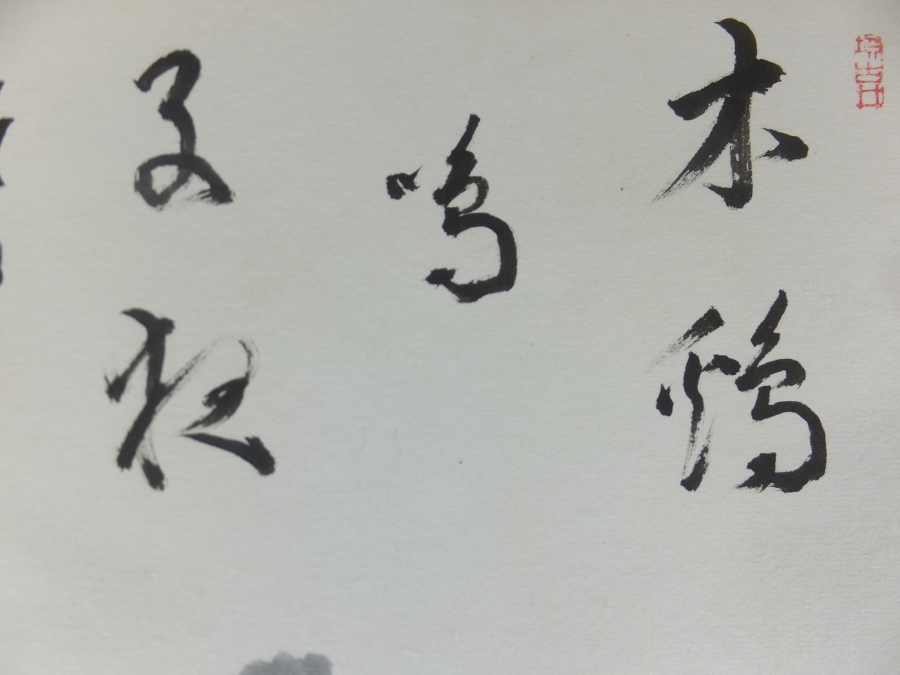 木鶏
鳴
子夜